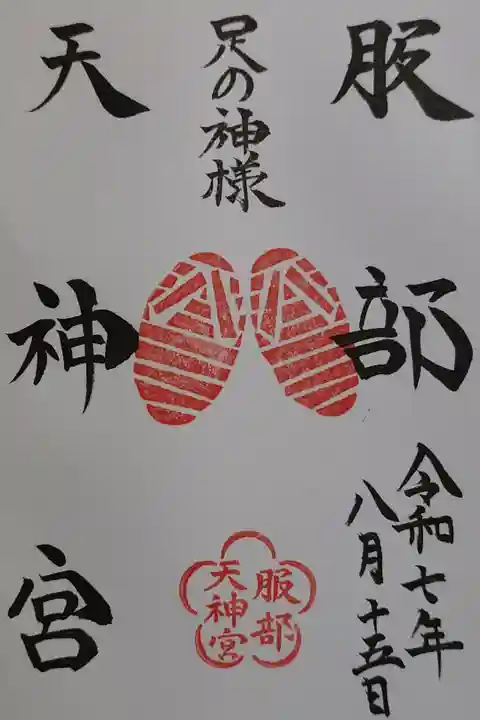 服部
足の神様
天神宮
令和七年
八月十五日
服部
天神宮